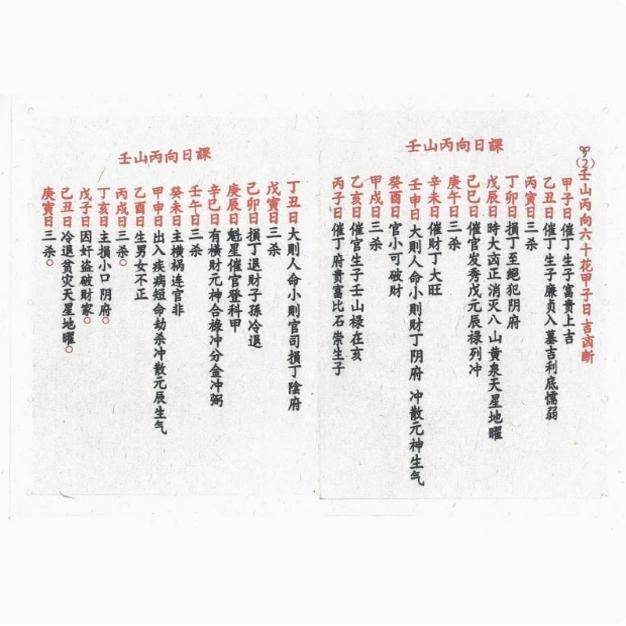 壬山丙向日課
(2)壬山丙向六十花甲子日吉凶断
甲子日催丁生子富貴上吉
乙丑日催丁生子廉贞入墓吉利底懦弱
丙寅日三杀
丁卯日損丁至絕犯阴府
戊辰日時大凶正消灭八山黄泉天星地曜
己巳日催官发秀戊元辰禄列冲
庚午日三杀
辛未日催財丁大旺
壬申日大則人命小則財丁阴府 冲散元神生气
癸酉日官小可破財
甲戌日三杀
乙亥日催官生子壬山禄在亥
丙子日催丁府貴富比石崇生子
壬山丙向日課
丁丑日大則人命小則官司損丁陰府
戊寅日三杀
己卯日損丁退財子孫冷退
庚辰日魁星催官登科甲
辛巳日有横財元神合祿冲分金冲弼
壬午日三杀
癸未日主横祸连官非
甲申日出入疾病短命劫杀冲散元辰生气
乙酉日生男女不正
丙戌日三杀。
丁亥日主損小口阴府。
戊子日因奸盗破財家。
己丑日冷退贫灾天星地曜。
庚寅日三杀。